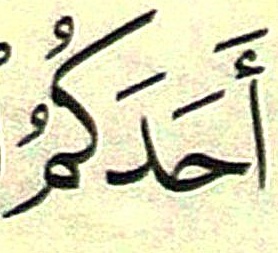 أَحَدَكُمُ